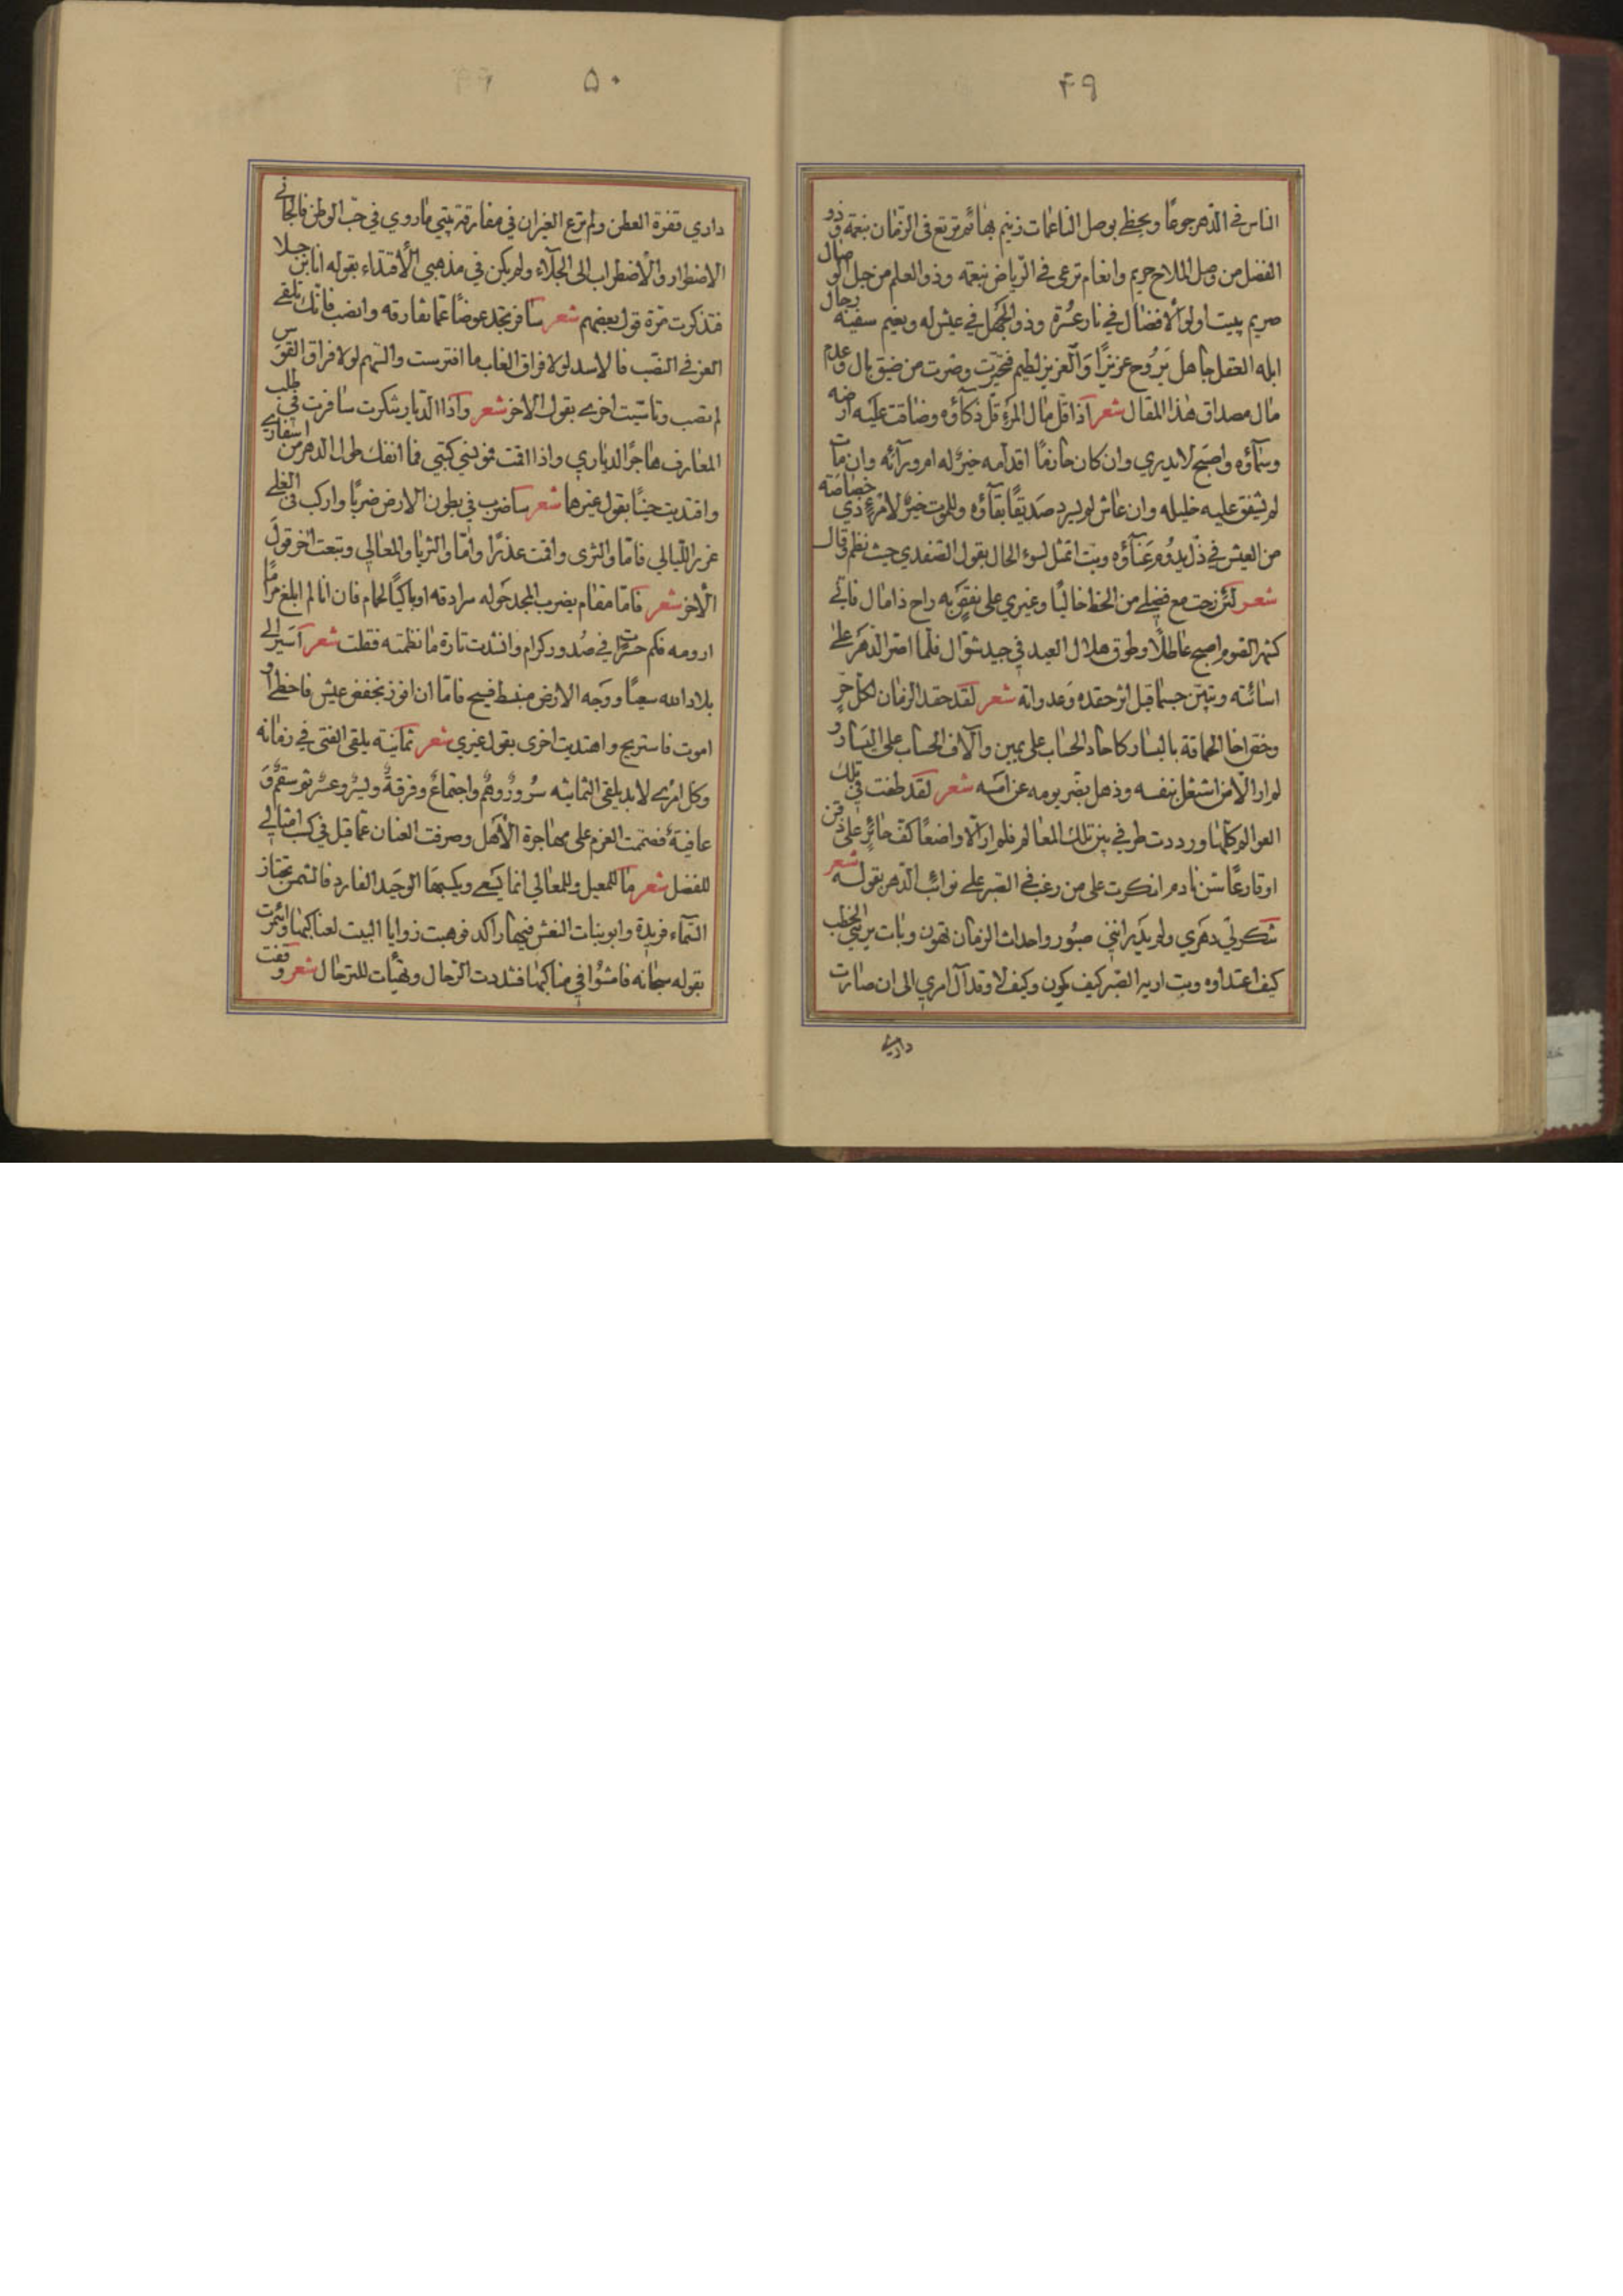 ۴۹
الناس في الدهر جوعًا ويحظى بوصل الناعمات زنيم بهائم ترتع في الزمان بنعمة وذو
الفضل من وصل الملاح حريم وانعام ترعى في الرياض بنعمه وذو العلم من حبل الوصال
صريم يبيت اولو الافضال في نار عسرة وذو الجهل في عيش له ونعيم سفيه رجال
ابله العقل جاهل يروح عزيزًا والعزيز لطيم فتحيرت وضرت من ضيق بال وعدم
مال مصداق هذا المقال شعر اذا قل مال المرء قل ذكاؤه وضاقت عليه ارضه
وسماؤه واصبح لا يدري وان كان حازمًا اقدامه خير له ام ورآئه وان مات
لم يشفق عليه خليله وان عاش لم يسرر صديقًا بقاؤه وللموت خير لامرء ذي خصاصة
من العيش في ذل يدوم عناؤه وبت اتمثل لسوء الحال بقول الصفدي حيث نظم وقال
شعر لئن رحت مع فضلي من الحظ خاليًا وغيري على نقص به راح ذا مال فاني
كشهر الصوم اصبح عاطلًا وطوق هلال العيد في جيد شوال فلما اصر الدهر على
اسائته وتبين حسبما قيل اثر حقده وعدوانه شعر لقد حقد الزمان لكل حر
وخص اخا الحماقة باليسار كاحاد الحساب على يمين وآلاف الحساب على اليسار و
لم ار الا من اشتغل بنفسه وذهل بضر يومه عن امسه شعر لقد طفت في تلك
العوالم كلها ورددت طرفي بين تلك المعالم فلم ار الا واضعًا كف حائر على ذقن
او قارعًا سن نادم انكرت على من رغب في الصبر على نوائب الدهر بقوله شعر
تنكر لي دهري ولم يدر انني صبور واحداث الزمان تهون وبات يريني الخطب
كيف اعتداوه وبت اريه الصبر كيف يكون وكيف لا وقد آل امري الى ان صارت
داري
۵۰
داري قفرة العطن ولم ترع الغيران في مفارقة بيتي ما روي في حب الوطن فالجاني
الاضطرار والاضطراب الى الجلآء ولم يكن في مذهبي الاقتداء بقوله انا ابن جلا
فتذكرت مرة قول بعضهم شعر سافر تجد عوضًا عما تفارقه وانصب فانك تلقى
العز في النصب فالاسد لولا فراق الغاب ما افترست والسهم لولا فراق القوس
لم تصب وتاسيت اخرى بقول الاخر شعر واذا الديار تنكرت سافرت في طلب
المعارف هاجرًا لدياري واذا اقمت فمونسي كتبي فما انفك طول الدهر من اسفاري
واقتديت حينًا بقول غيرهما شعر ساضرب في بطون الارض ضربًا واركب في العلى
غرر الليالي فاما والثرى واقمت عذرًا واما والثريا والمعالي وتبعت اخر قول
الاخر شعر فاما مقام يضرب المجد حوله سرادقه او باكيًا لحمام فان انا لم ابلغ مرامًا
ارومه فكم حسرات في صدور كرام وانشدت تارة ما نظمته فقلت شعر اسير الى
بلاد الله سعيًا ووجه الارض منبسط فسيح فاما ان افوز بخفض عيش فاحظى او
اموت فاستريح واهتديت اخرى بقول غيري شعر ثمانية يلقى الفتى في زمانه
وكل امرى لا بد يلقى الثمانيه سرور وهم واجتماع وفرقة ويسر وعسر ثم سقم و
عافية فصممت العزم على مهاجرة الاهل وصرفت العنان عما قيل في كسب امثالي
للفضل شعر ما للمعيل وللمعالي انما يسعى ويكسبها الوحيد الفارد فالشمس تجتاز
السماء فريدة وابو بنات النعش فيها راكد فوهبت زوايا البيت لعناكبها وائتمرت
بقوله سبحانه فامشوا في مناكبها فشددت الرحال وتهيات للترحال شعر وقفت